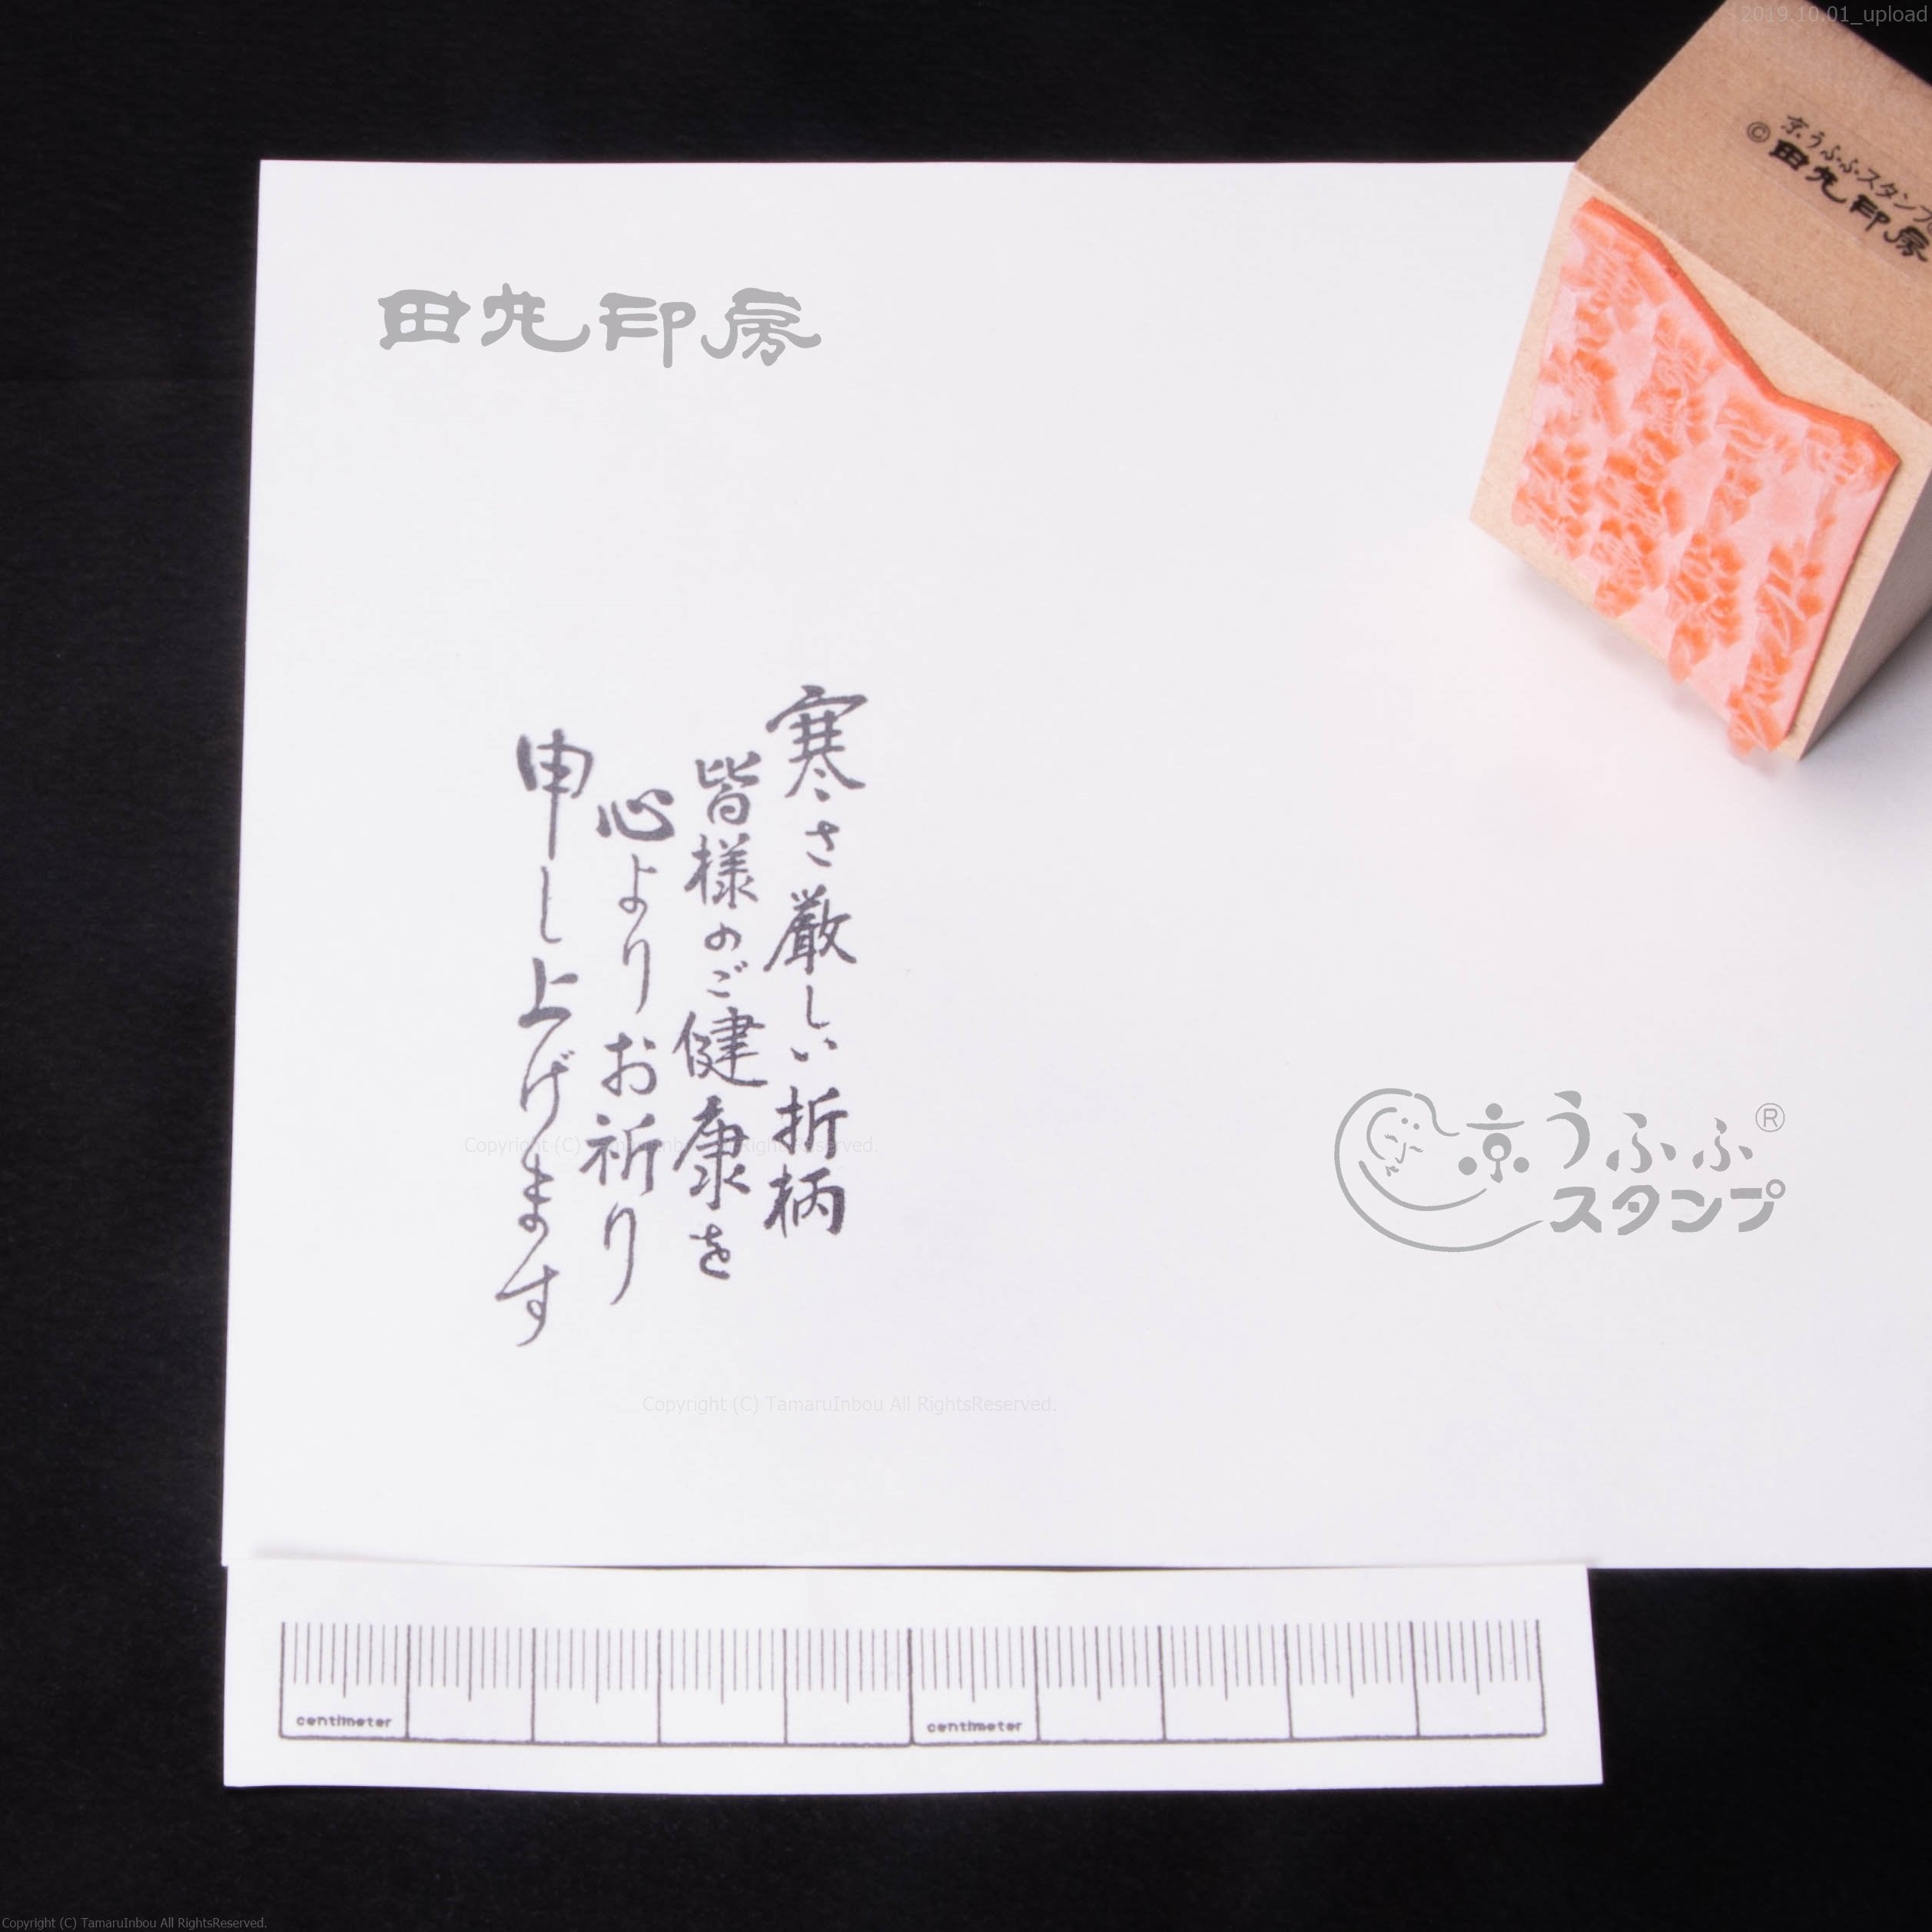 2019.10.01_upload
京うふふスタンプ
©田丸印房
田丸印房
寒さ厳しい折柄
皆様のご健康を
心よりお祈り
申し上げます
Copyright (C) TamaruInbou All RightsReserved.
京うふふ®
スタンプ
Copyright (C) TamaruInbou All RightsReserved.
centimeter centimeter
Copyright (C) TamaruInbou All RightsReserved.